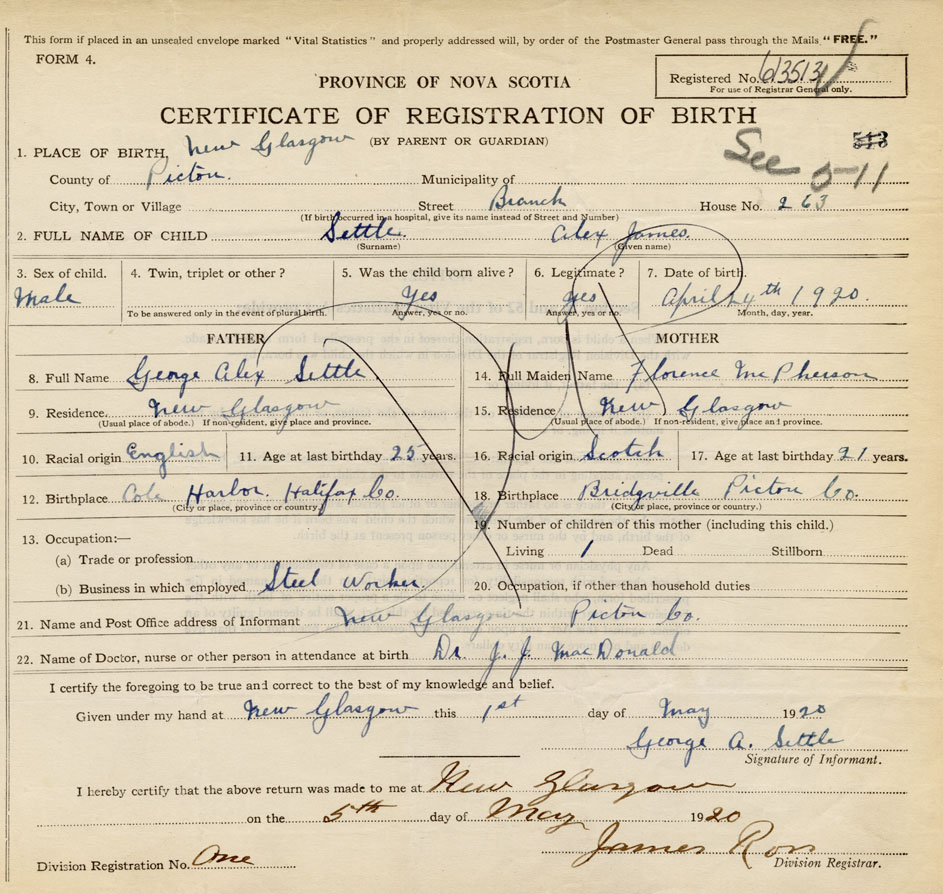 This form if placed in an unsealed envelope marked "Vital Statistics" and properly addressed will, by order of the Postmaster General pass through the Mails "FREE."
FORM 4.
PROVINCE OF NOVA SCOTIA
Registered No.
For use of Registrar General only.
CERTIFICATE OF REGISTRATION OF BIRTH
(BY PARENT OR GUARDIAN)
See 511
1. PLACE OF BIRTH, New Glasgow
County of Picton. Municipality of
City, Town or Village Street Branch House No. 263
(If birth occurred in a hospital, give its name instead of Street and Number)
2. FULL NAME OF CHILD Settle. Alex James.
(Surname) (Given name)
3. Sex of child. 4. Twin, triplet or other? 5. Was the child born alive? 6. Legitimate? 7. Date of birth.
Male Yes yes April 24th 1920.
To be answered only in the event of plural birth. Answer, yes or no. Answer, yes or no. Month, day, year.
FATHER MOTHER
8. Full Name George Alex Settle. 14. Full Maiden Name Florence McPherson
9. Residence. New Glasgow 15. Residence New Glasgow
(Usual place of abode.) If non-resident, give place and province. (Usual place of abode.) If non-resident, give place and province.
10. Racial origin English 11. Age at last birthday 25 years. 16. Racial origin Scotch 17. Age at last birthday 21 years.
12. Birthplace Cole Harbor. Halifax Co. 18. Birthplace Bridgville Picton Co.
(City or place, province or country.) (City or place, province or country.)
13. Occupation:— 19. Number of children of this mother (including this child.)
(a) Trade or profession Living 1 Dead Stillborn
(b) Business in which employed Steel Worker 20. Occupation, if other than household duties
21. Name and Post Office address of Informant New Glasgow Picton Co.
22. Name of Doctor, nurse or other person in attendance at birth Dr. J. J. MacDonald
I certify the foregoing to be true and correct to the best of my knowledge and belief.
Given under my hand at New Glasgow this 1st day of May 1920
George A. Settle
Signature of Informant.
I hereby certify that the above return was made to me at New Glasgow
on the 5th day of May 1920
James Ross
Division Registration No. One Division Registrar.